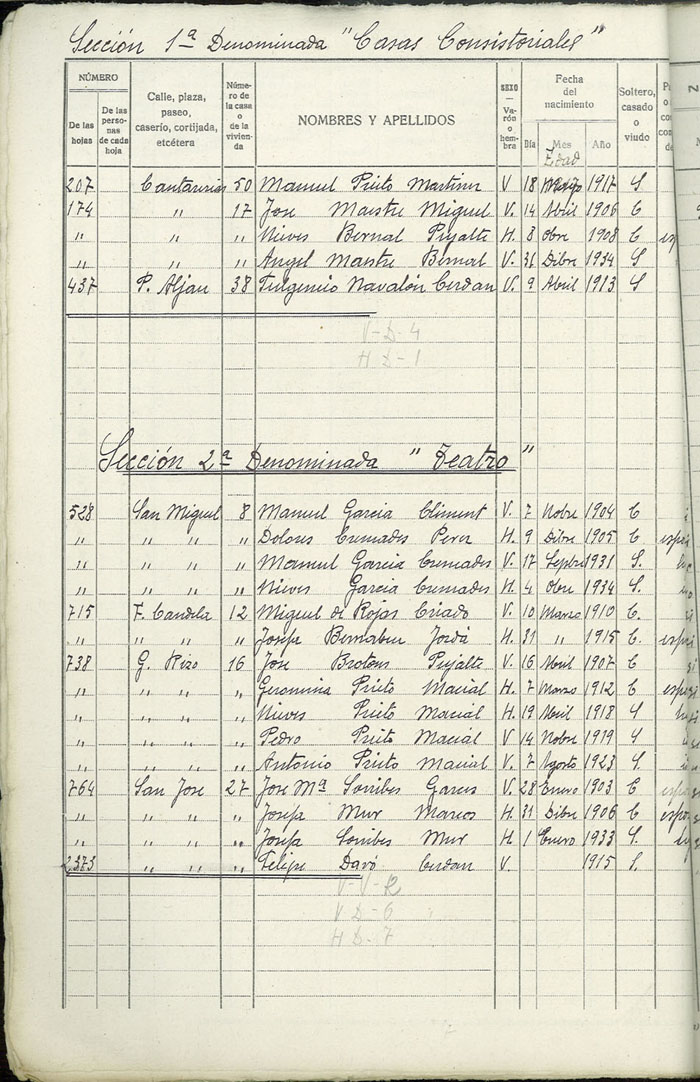 Sección 1ª Denominada "Casas Consistoriales"
NÚMERO
De las hojas
De las personas de cada hoja
Calle, plaza, paseo, caserío, cortijada, etcétera
Número de la casa o de la vivienda
NOMBRES Y APELLIDOS
SEXO — Varón o hembra
Fecha del nacimiento
Día Mes Año
Edad
Soltero, casado o viudo
207 Cantareria 50 Manuel Prieto Martinez V 18 Mayo 1917 S
174 " 17 Jose Maestre Miguel V. 14 Abril 1906 C
" " " Nieves Bernal Pujalte H. 8 Obre 1908 C
" " " Angel Mastre Bernal V. 31 Dibre 1934 S
437 P. Aljau 38 Fulgencio Navalón Cerdan V. 9 Abril 1913 S
V-D-4
H D-1
Sección 2ª Denominada "Teatro"
528 San Miguel 8 Manuel Garcia Climent V. 7 Nobre 1904 C
" " " " Dolores Cremades Perez H. 9 Dibre 1905 C
" " " " Manuel Garcia Cremades V. 17 Sepbre 1931 S.
" " " " Nieves Garcia Cremades H. 4 Obre 1934 S.
715 F. Candela 12 Miguel de Rojas Criado V. 10 Marzo 1910 C.
" " " " Josefa Bernabeu Jordá H. 31 " 1915 C.
738 G. Rizo 16 Jose Brotons Pujalte V. 16 Abril 1907 C
" " " " Geronima Prieto Macial H. 7 Marzo 1912 C
" " " " Nieves Prieto Macial H. 19 Abril 1918 S
" " " " Pedro Prieto Macial V 14 Nobre 1919 S
" " " " Antonio Prieto Macial V. 7 Agosto 1923 S.
764 San Jose 27 Jose Mª Sorribes Garces V. 28 Enero 1903 C
" " " " Josefa Mur Marcos H. 31 Dibre 1906 C
" " " " Josefa Sorribes Mur H 1 Enero 1933 S.
2373 " " " Felipe Davó Cerdan V. 1915 S.
V D-6
H D-7